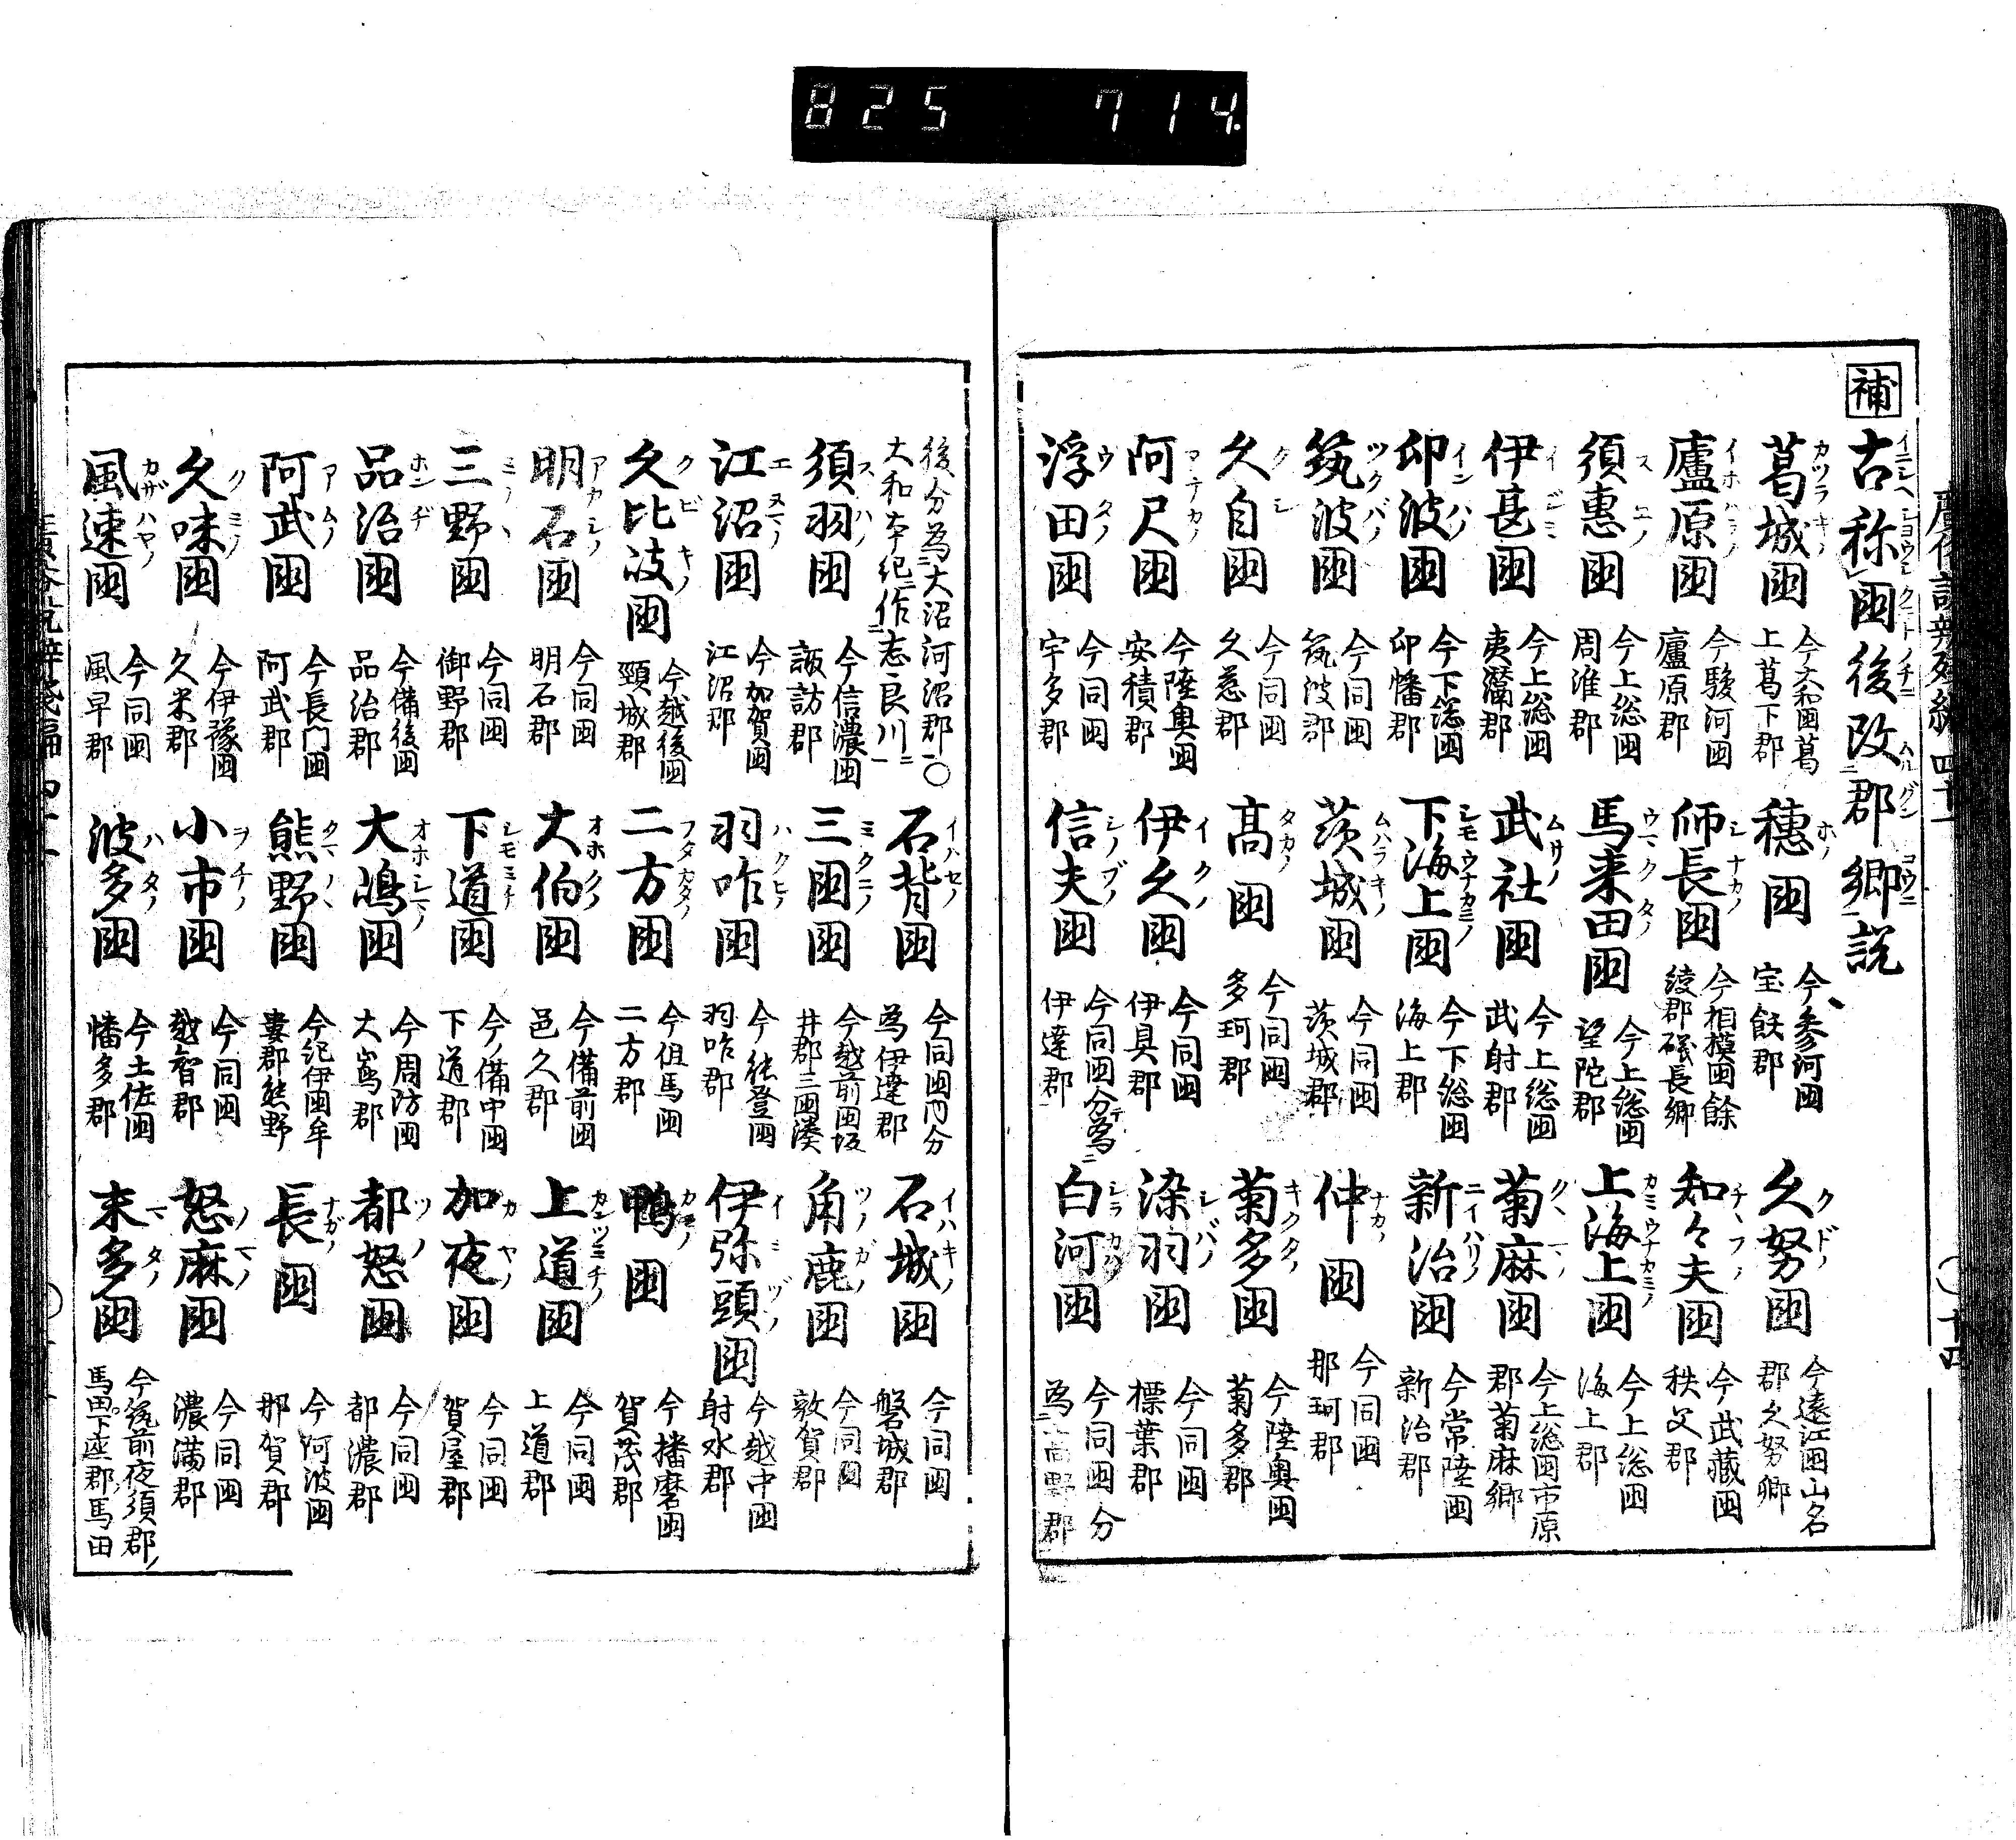 825 714.
補 古称国後改郡郷説
葛城国 今大和国葛上葛下郡 穂国 今参河国宝飫郡 久努国 今遠江国山名郡久努郷
廬原国 今駿河国廬原郡 師長国 今相模国餘綾郡磯長郷 知々夫国 今武蔵国秩父郡
須惠国 今上総国周淮郡 馬来田国 今上総国望陀郡 上海上国 今上総国海上郡
伊甚国 今上総国夷灊郡 武社国 今上総国武射郡 菊麻国 今上総国市原郡菊麻郷
印波国 今下総国印幡郡 下海上国 今下総国海上郡 新治国 今常陸国新治郡
筑波国 今同国筑波郡 茨城国 今同国茨城郡 仲国 今同国那珂郡
久自国 今同国久慈郡 高国 今同国多珂郡 菊多国 今陸奥国菊多郡
阿尺国 今陸奥国安積郡 伊久国 今同国伊具郡 染羽国 今同国標葉郡
浮田国 今同国宇多郡 信夫国 今同国分為伊達郡 白河国 今同国分為高野郡
後分為大沼河沼郡○大和本紀作志良川 石背国 今同国内分為伊達郡 石城国 今同国磐城郡
須羽国 今信濃国諏訪郡 三国国 今越前国坂井郡三国湊 角鹿国 今同国敦賀郡
江沼国 今加賀国江沼郡 羽咋国 今能登国羽咋郡 伊弥頭国 今越中国射水郡
久比岐国 今越後国頸城郡 二方国 今但馬国二方郡 鴨国 今播磨国賀茂郡
明石国 今同国明石郡 大伯国 今備前国邑久郡 上道国 今同国上道郡
三野国 今同国御野郡 下道国 今備中国下道郡 加夜国 今同国賀屋郡
品治国 今備後国品治郡 大嶋国 今周防国大嶌郡 都怒国 今同国都濃郡
阿武国 今長門国阿武郡 熊野国 今紀伊国牟婁郡熊野 長国 今阿波国那賀郡
久味国 今伊豫国久米郡 小市国 今同国越智郡 怒麻国 今同国濃満郡
風速国 今同国風早郡 波多国 今土佐国幡多郡 末多国 今筑前夜須郡ノ馬田下座郡馬田